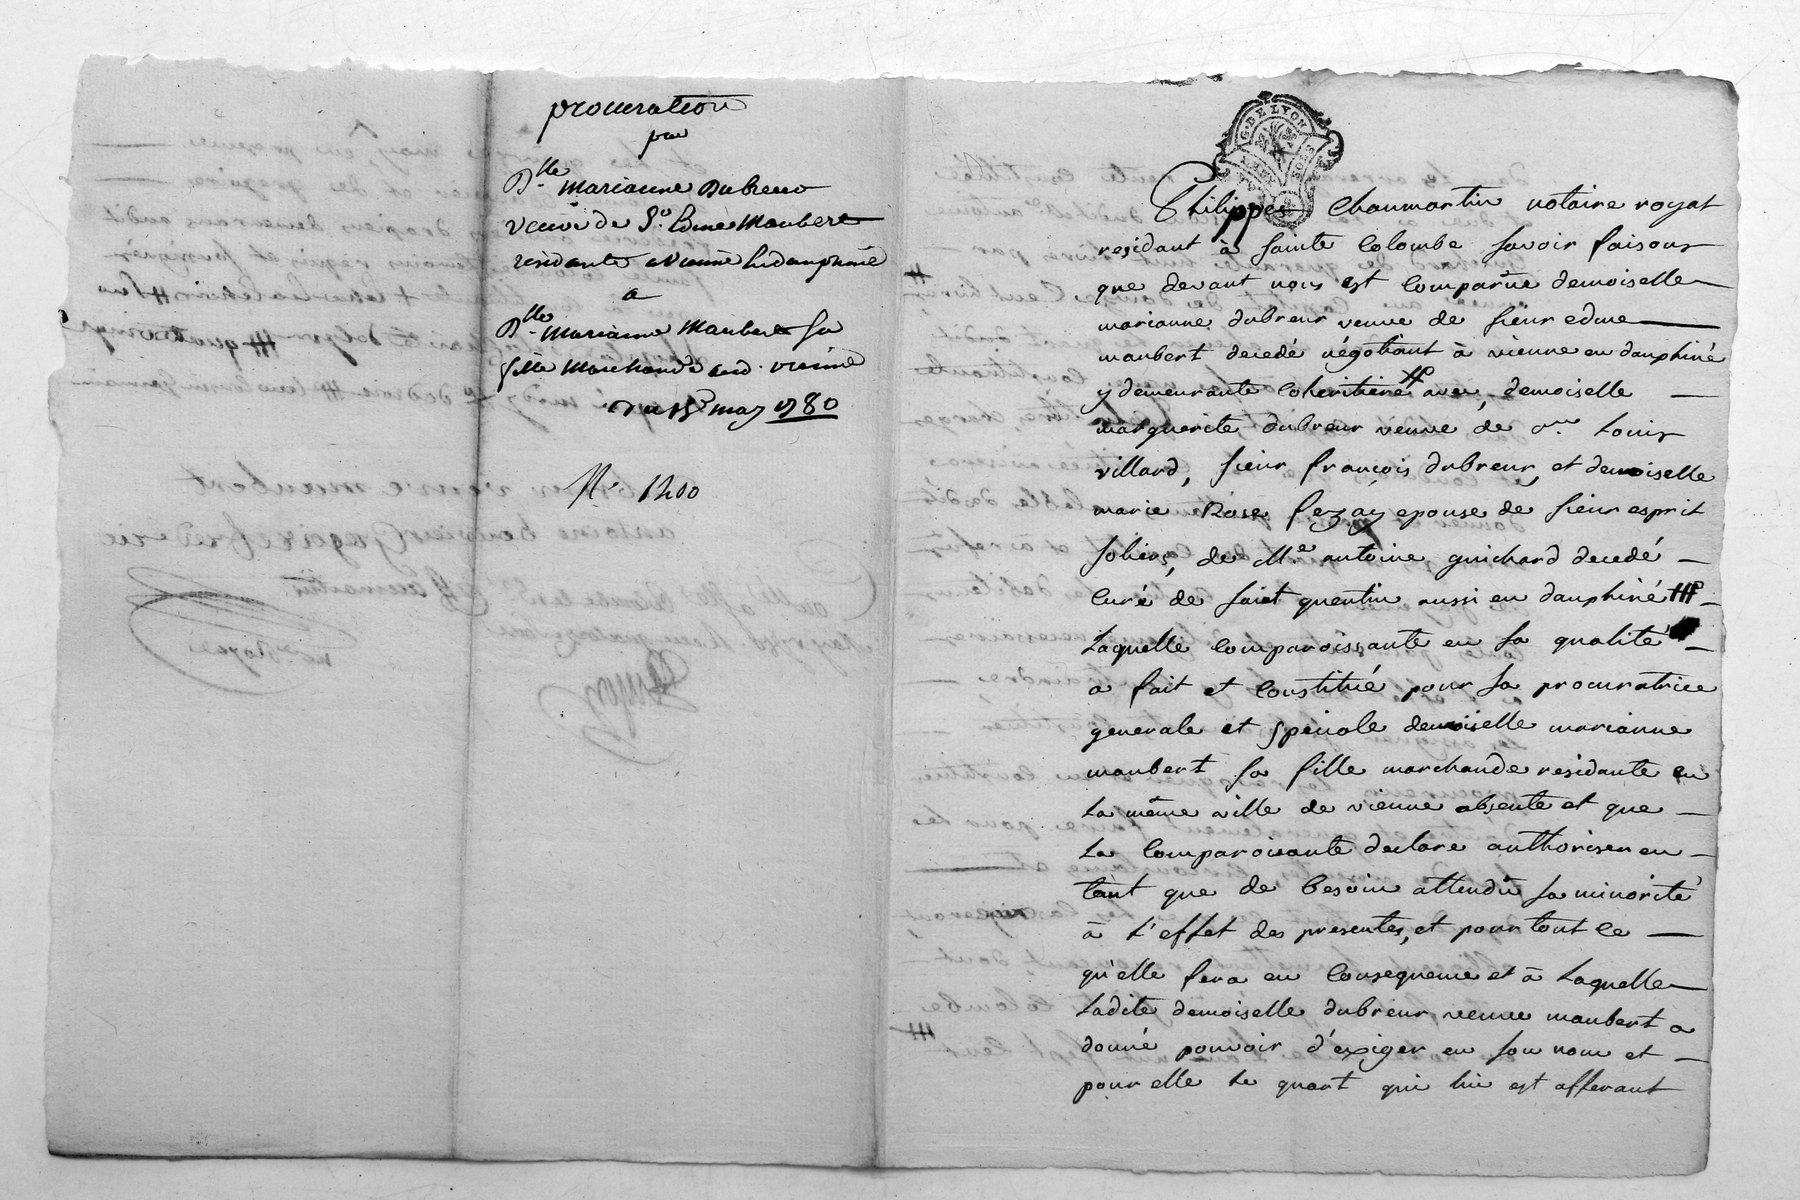 procuration
par
Dlle marianne Dubreur
veuve de Sr. Edme Maubert
residante a vienne
a
Dlle marianne Maubert sa
fille Marchande aud. vienne
Du 15 may 1780
No. 1200
G. DE LYON
Philippes Chaumartin notaire royal
residant à sainte Colombe savoir faisons
que devant nous est Comparüe demoiselle
marianne dubreur veuve de sieur edme
maubert decedé négotiant à vienne en dauphiné
y demeurante Coheritiere avec, demoiselle
marguerite dubreur veuve de Louis
villard, sieur françois dubreur, et demoiselle
marie Rose fezay epouse de sieur esprit
soliers, de Me. antoine guichard decedé
Curé de saint quentin aussi en dauphiné
Laquelle Comparoissante en sa qualité
a fait et Constitué pour sa procuratrice
generale et speciale demoiselle marianne
maubert sa fille marchande residante en
La même ville de vienne absente et que
La Comparoissante declare authoriser en
tant que de besoin attendû sa minorité
à L'effet des presentes, et pour tout ce
qu'elle fera en Consequence et à Laquelle
Ladite demoiselle dubreur veuve maubert a
donné pouvoir d'exiger en son nom et
pour elle Le quart qui lui est afferant